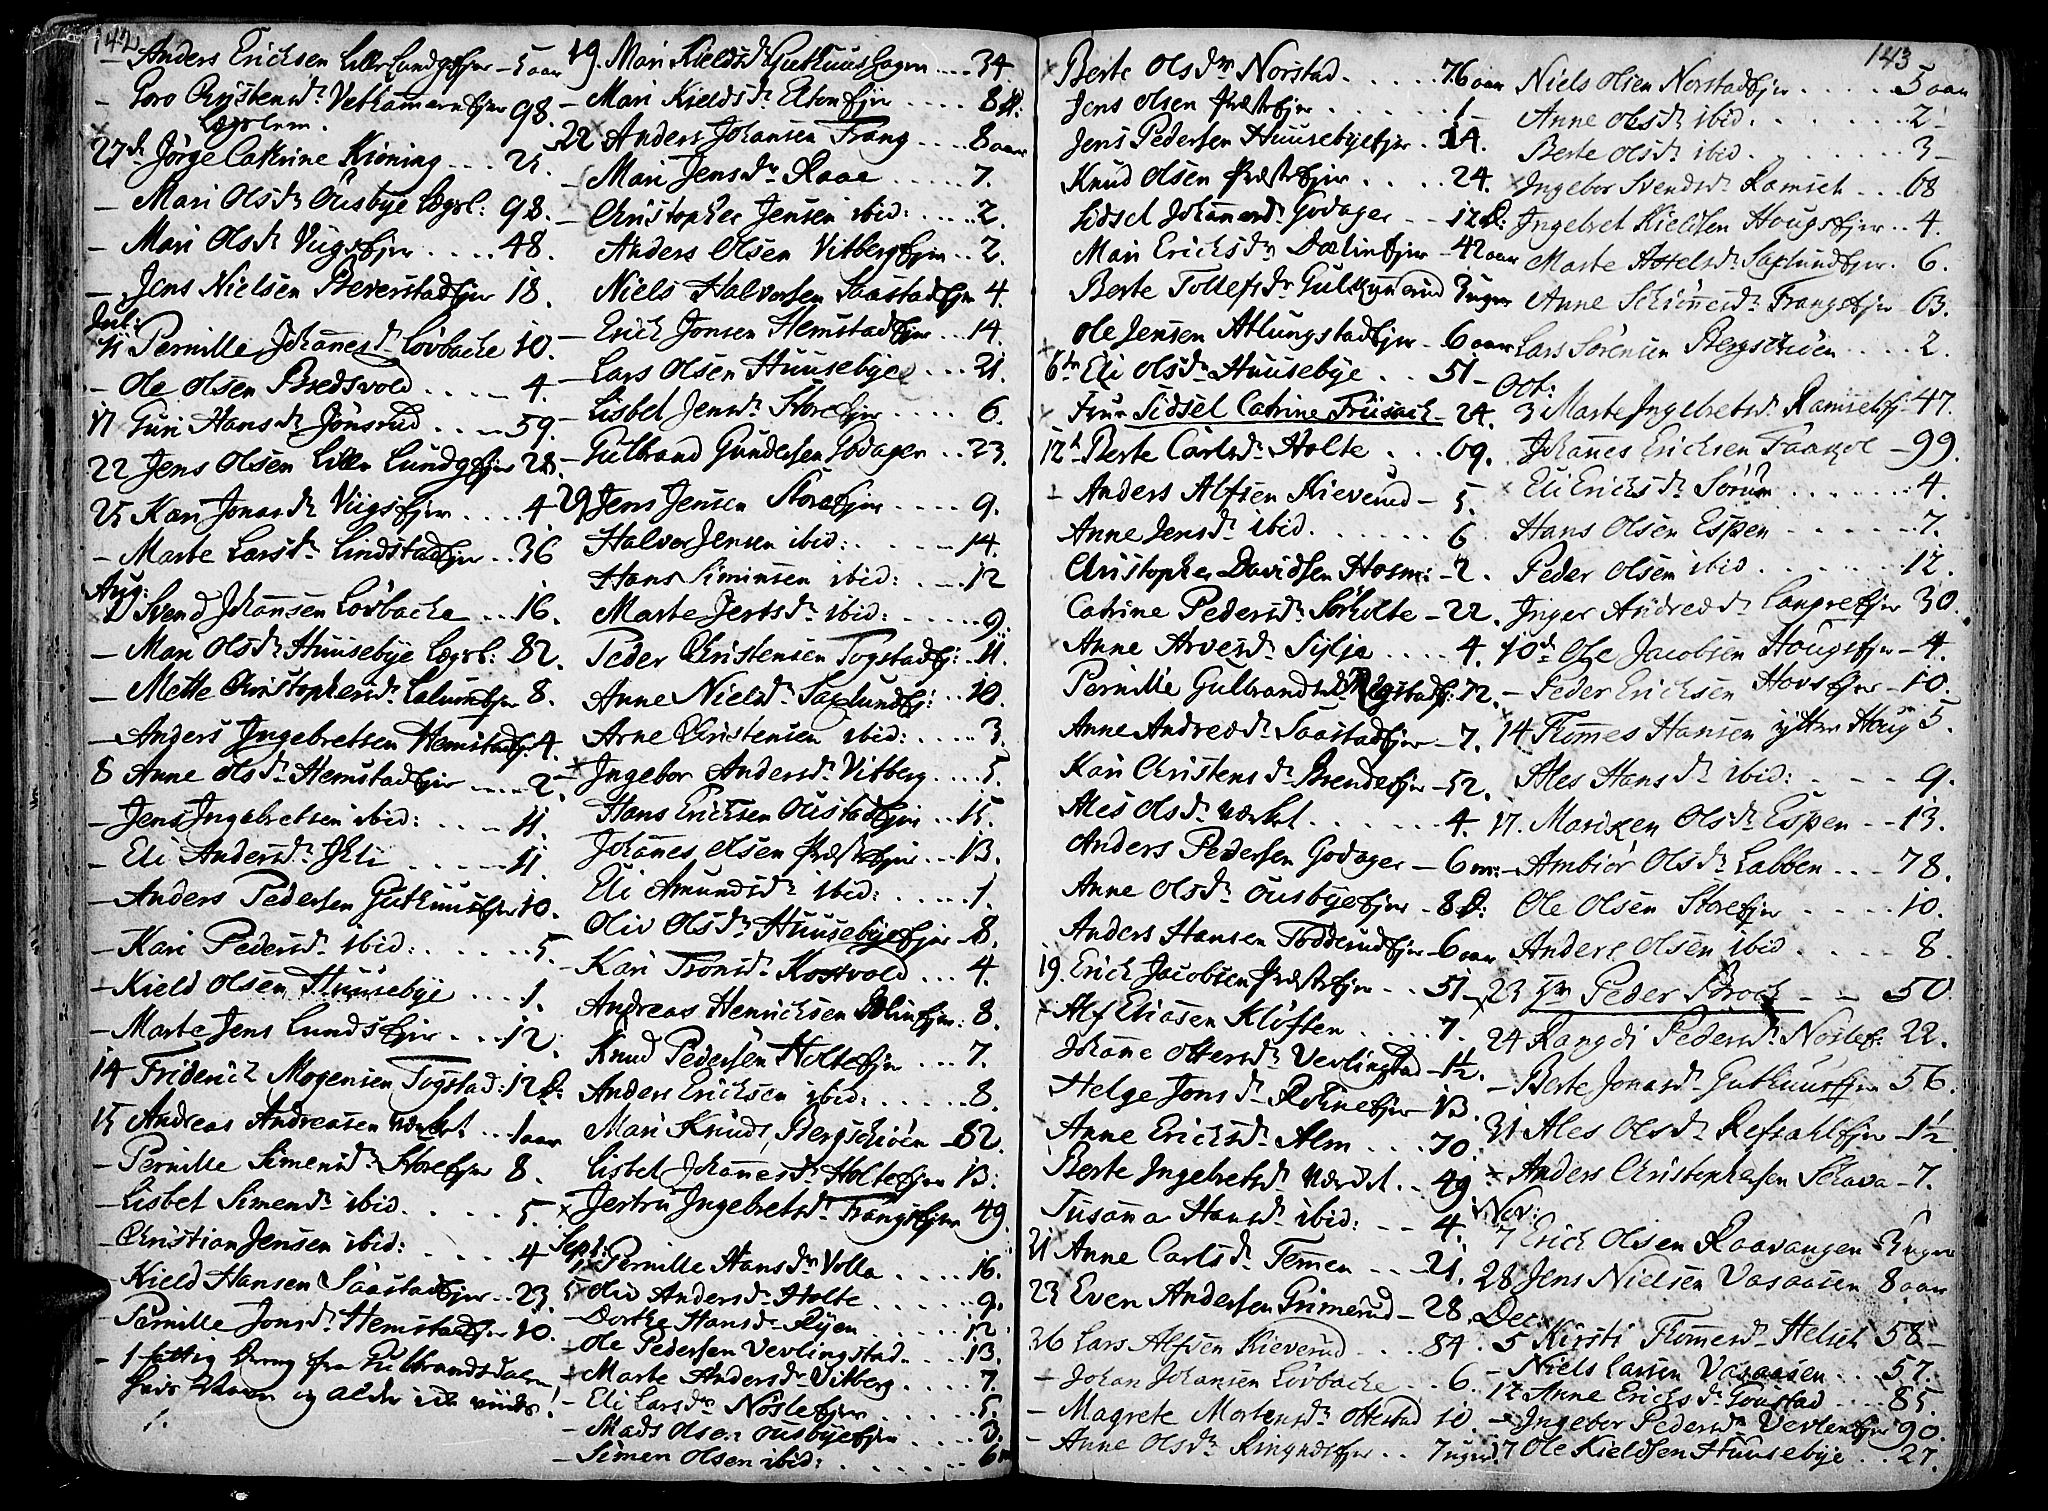 142
- Anders Erichsen Lille Lundgsejer - 5 aar
- Goro Christensd. Vethammerejer 98.
Lægslem.
27d. Jørge Cathrine Kioning ... 25.
- Mari Olsdr. Ousbye Lægsl: 98.
- Mari Olsdr. Viigsejer .... 48.
- Jens Nielsen Beverstadejer 18.
Jul:
11 Pernille Johannesdr. Løvbache 10.
- Ole Olsen Bredsvold .... 4.
17 Guri Hansdr. Jønsrud ... 59.
22 Jens Olsen Lille Lundgejer 28.
25 Kari Jonasdr. Viigsejer ... 4
- Marte Larsdr. Lindstadejer .. 36
Aug:
1 Svend Johansen Løvbache .. 16.
- Mari Olsdr. Huusebye Lægsl: 82.
- Mette Christophersdr. Lalumejer 8.
- Anders Ingebretsen Hemstadej. 4.
8 Anne Olsdr. Hemstadejer .... 2.
- Jens Ingebretsen ibid: .... 11.
- Eli Andersdr. .... 11.
- Anders Pedersen Guthuusejer 10.
- Kari Pedersdr. ibid: .... 5.
- Kield Olsen Huusebye ... 1.
- Marte Jens Lundsejer ... 12.
14 Friderich Mogensen Togstad: 12 D:
15 Andreas Andreasen værket .. 1 aar
- Pernille Simensdr. Storeejer 8.
- Lisbet Simensdr. ibid ..... 5.
- Christian Jensen ibid: .... 4
Kield Hansen Saastadejer .. 23.
Pernille Jonsdr. Hemstadejer 10.
- 1 fattig Dreng fra Gulbrandsdalen,
hvis Navn og alder ikke viides!
1.
19. Mari Kieldsdr. Guthuus hagen .... 34
- Mari Kieldsdr. Elton ejer .... 8 D:
22 Anders Johansen Frang .... 8 aar
- Mari Jensdr. Raae ..... 7.
- Christopher Jensen ibid: .... 2.
Anders Olsen Vitbergejer .. 2.
Niels Halvorsen Saastadejer 4.
- Erich Jonsen Hemstadejer .. 14.
- Lars Olsen Huusebye ... 21.
- Lisbet Jensdr. Storeejer .... 6.
- Gulbrand Gundersen Godager .. 23.
29 Jens Jensen Storeejer .... 9.
Halvor Jensen ibid: .... 14.
Hans Simensen ibid: ... 12
Marte Jertsdr. ibid: ..... 9.
Peder Christensen Togstadej: 11.
Anne Nielsdr. Saxlundej: .. 10.
Arne Christensen ibid: .... 3.
- Ingebor Andersdr. Vitberg .... 5.
Hans Erichsen Oustadejer .. 15.
Johannes Olsen Præstejer ... 13.
Eli Amundsdr. ibid: .... 1.
Oliv Olsdr. Huusebyeejer 8.
- Kari Tronsdr. Kostvold ... 4.
Andreas Henrichsen ejer: 8.
Knud Pedersen Holteejer ... 7.
Anders Erichsen ibid: ..... 8.
Mari Knuds, Bergschiøen - 82.
Lisbet Johannesdr. Holteejer 13.
Jertru Ingebretsdr. Frangsejer 49.
Sept:
Pernille Hansdr. Volla .... 16.
5 Oliv Andersdr. Holte ..... 9.
- Dorthe Hansdr. Ryen .... 12
- Ole Pedersen Verlingstad .... 13.
- Marte Andersdr. Vitberg .... 7.
- Eli Larsdr. Nøsleejer ..... 5.
- Mads Olsen Ousbyeejer .... 3.
- Simen Olsen ibid: ..... 6
143
Berte Olsdr. Norstad ..... 76 aar
Jens Olsen Præstejer ..... 1 -
Jens Pedersen Huusebyeejer . 24.
Knud Olsen Præstejer .... 24.
Sidsel Johannesdr. Godager -- 12 D:
Mari Erichsdr. Dælinejer - 42 aar
Berte Tollefsdr. 3 uger
Ole Jensen Atlungstadejer - 6 aar
6te Eli Olsdr. Huusebye .. 51 -
Frue Sidsel Catrine Friisach - 24.
12t Berte Carlsdr. Holte ... 69.
- Anders Alfsen Kieverud - 5.
Anne Jensdr. ibid ...... 6
Christopher Davidsen Hosm: - 2.
Catrine Pedersdr. Sørholte - 22.
Anne Arvesdr. Sylja .... 4.
Pernille Gulbrandsdr. 12.
Anne Andresdr. Saastadejer - 7.
Kari Christensdr. Brendeejer - 52.
Ales Olsdr. værket ...... 4.
Anders Pedersen Godager - 6 m:
Anne Olsdr. Ousbyeejer - 8 D:
Anders Hansen Todderudejer - 6 aar
19. Erich Jacobsen Præstejer .. 51 -
Alf Eliasen Kløften .... 7.
Johanne Ottersdr. Verlingstad - 1½.
Helge Jonsdr. ejer - 13.
Anne Erichsdr. Alm ... 70.
Berte Ingebretsdr. værket .. 49
Susanna Hansdr. ibid: -- 4.
21 Anne Carlsdr. Temmen ... 21.
23 Even Andersen Grimerud - 28.
26 Lars Alfsen Kieverud ... 84.
- Johan Johansen Løvbache .. 6.
- Magrete Mortensdr. Ottestad 10.
- Anne Olsdr. Ringnæsejer .. 7 uger
Niels Olsen Norstadejer ..... 5 aar
Anne Olsdr. ibid ...... 2 -
Berte Olsdr. ibid ...... 3 -
Ingebor Svendsdr. Ramset .. 68
Ingebret Kieldsen Hougsejer .. 4.
Marte Axelsdr. Saxlundejer . 6.
Anne Frangsejer 63.
Lars Sørensen Bergschiøen .... 2.
Oct:
3 Marte Ingebretsdr. Ramsetej - 47.
Johannes Erichsen - 99.
Eli Erichsdr. Sørum ...... 4.
Hans Olsen Espen ..... 7.
Peder Olsen ibid ...... 12.
Inger Andredr. Langreejer 30.
10de Ole Jacobsen Hougsejer - 4.
- Peder Erichsen Hovsejer - 10.
14 Tommes Hansen yttre Houg 5.
Ales Hansdr. ibid: .... 9.
17. Mariken Olsdr. Espen -- 13.
- Ambiør Olsdr. Labben ... 78.
Ole Olsen Storeejer ..... 10.
- Anders Olsen ibid ..... 8.
23 Hr. Peder Broch -- 50.
24 Rangdi Pedersdr. Nosleej: 22.
- Berte Jonasdr. Guthuusejer 56.
31 Ales Olsdr. Refsahlejer - 1½
- Anders Christophersen - 7.
Nov:
7 Erich Olsen Raavangen 3 uger
28 Jens Nielsen Vasaasen 8 aar
Dec:
5 Kirsti Tommesdr. Helset 58 -
- Niels Larsen Vasaasen ... 57.
12 Anne Erichsdr. Goustad .... 85.
- Ingebor Pedersdr. Verlenejer 90.
17 Ole Kieldsen Huusebye ... 27.